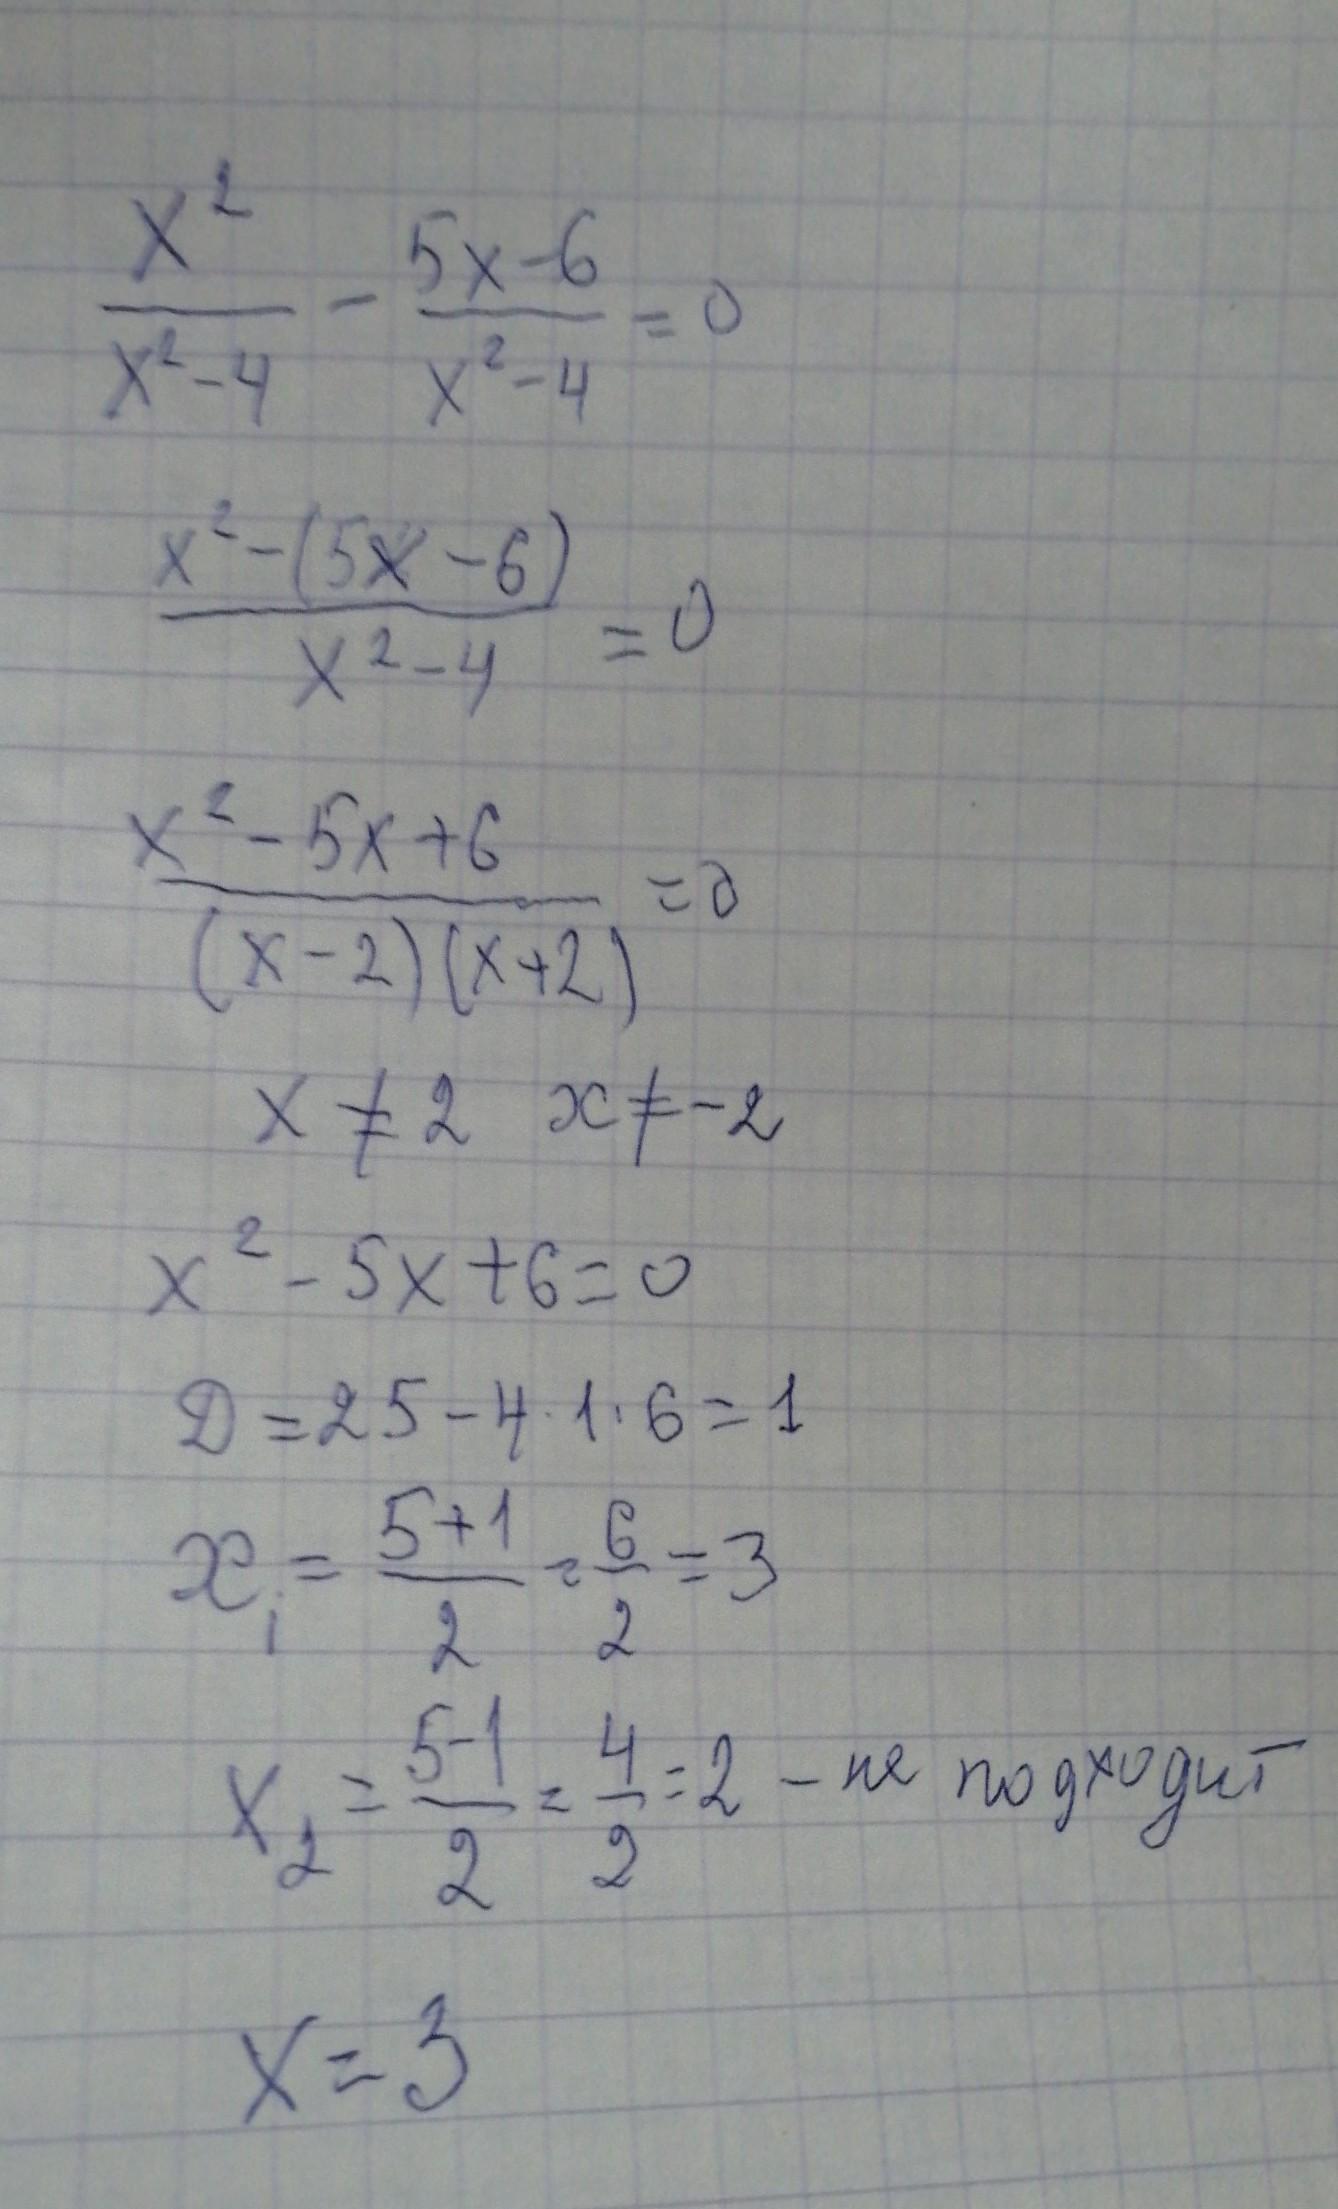 x²/(x²-4) - (5x-6)/(x²-4) = 0
(x²-(5x-6))/(x²-4) = 0
(x²-5x+6)/((x-2)(x+2)) = 0
x ≠ 2 x ≠ -2
x²-5x+6=0
D=25-4·1·6=1
x₁ = (5+1)/2 = 6/2 = 3
x₂ = (5-1)/2 = 4/2 = 2 - не подходит
x=3